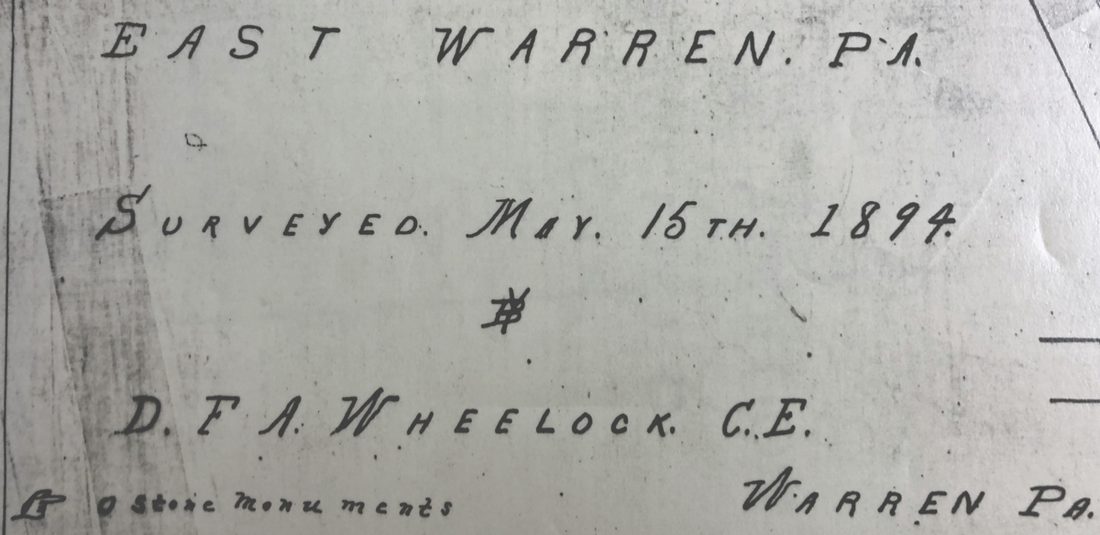 EAST WARREN. PA.
SURVEYED. MAY. 15TH. 1894.
BY
D. F. A. WHEELOCK. C.E.
o stone monuments
WARREN PA.